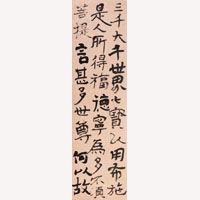 三千大千世界七寶以用布施
是人所得福德寧為多不須
菩提言甚多世尊何以故